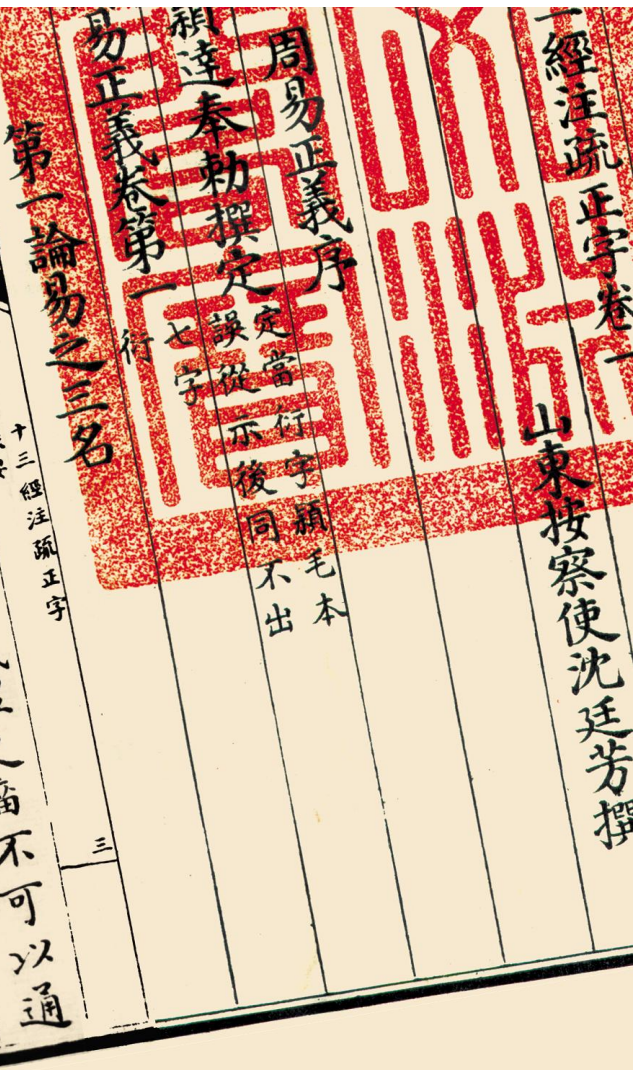 一經注疏正字卷一
山東按察使沈廷芳撰
周易正義序
穎達奉勅撰定
定當衍字穎毛本
誤從示後同不出
易正義卷第一
七字
衍
第一論易之三名
十三經注疏正字
三
不可以通